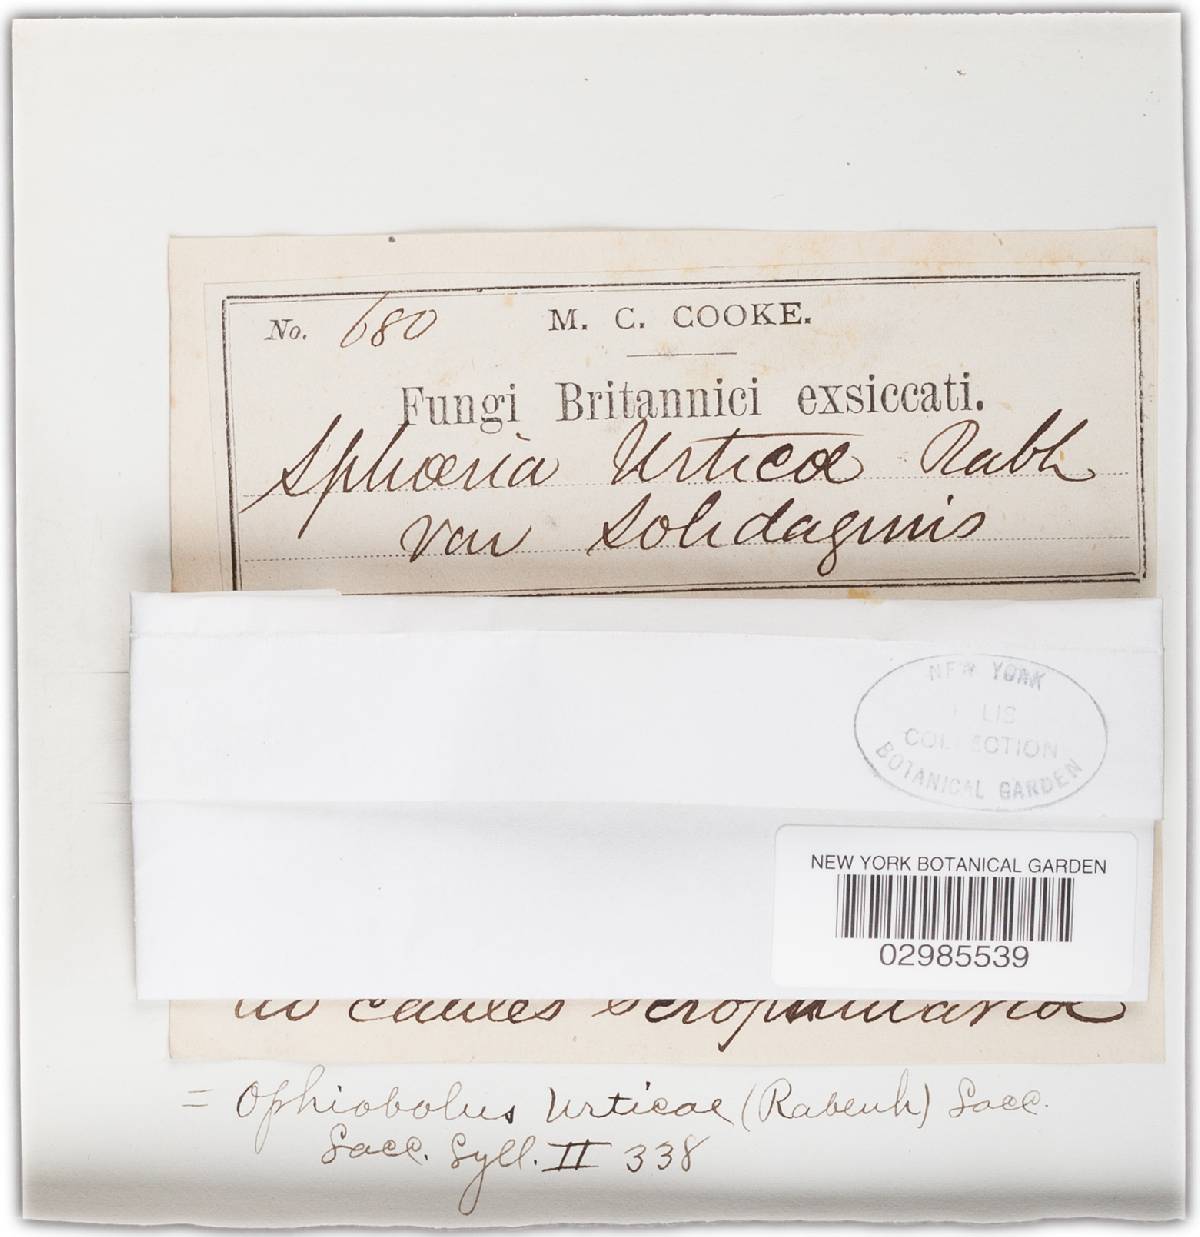 No. 680 M. C. COOKE.
Fungi Britannici exsiccati.
Sphæria Urticæ Rabh
var Solidaginis
NEW YORK
COLLECTION
BOTANICAL GARDEN
NEW YORK BOTANICAL GARDEN
02985539
caules
= Ophiobolus Urticae (Rabenh) Sacc.
Sacc. Syll. II 338